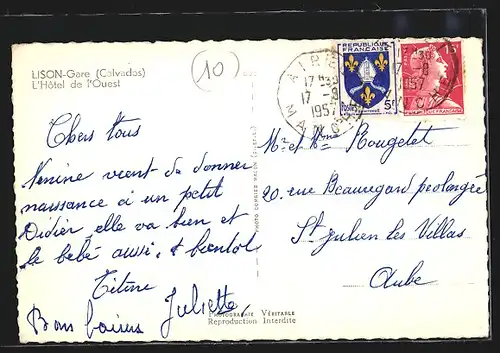 LISON-Gare (Calvados)
L'Hôtel de l'Ouest
(10)
RÉPUBLIQUE FRANÇAISE
5F
15
17 -8
1957
MANCHE
17 -8
1957
MANCHE
Chers tous
Nenine vient de donner
naissance à un petit
Didier elle va bien et
le bébé aussi, à bientôt
Titine
Juliette
Bons baisers
Mr et Mme Rougelet
20, rue Beauregard prolongée
St Julien les Villas
Aube
Photographie Véritable
Reproduction Interdite